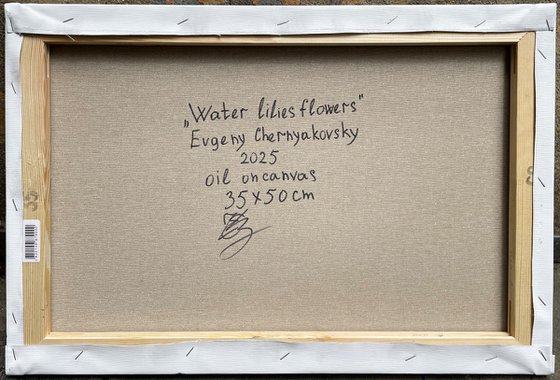 „Water lilies flowers"
Evgeny Chernyakovsky
2025
oil on canvas
35×50 cm
35